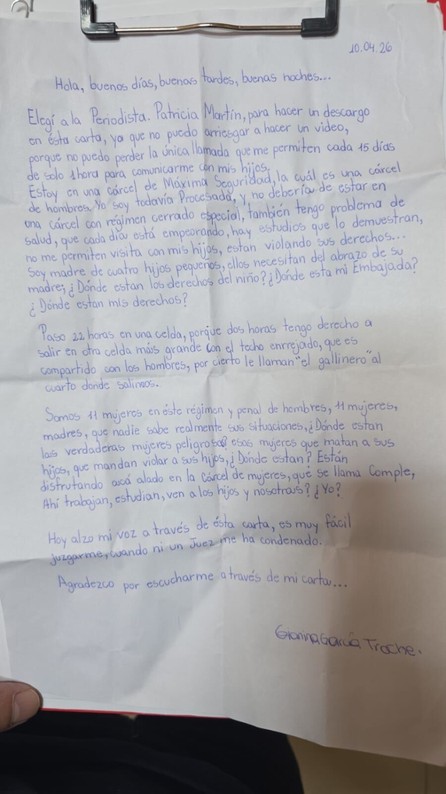 10.04.26
Hola, buenos días, buenas tardes, buenas noches...
Elegí a la Periodista. Patricia Martín, para hacer un descargo
en ésta carta, ya que no puedo arriesgar a hacer un video,
porque no puedo perder la única llamada que me permiten cada 15 días
de solo 1 hora para comunicarme con mis hijos.
Estoy en una cárcel de Máxima Seguridad, la cuál es una cárcel
de hombres. Yo soy todavía Procesada, y no debería de estar en
una cárcel con régimen cerrado especial, también tengo problema de
salud, que cada día está empeorando, hay estudios que lo demuestran,
no me permiten visita con mis hijos, estan violando sus derechos...
Soy madre de cuatro hijos pequeños, ellos necesitan del abrazo de su
madre, ¿Dónde estan los derechos del niño? ¿Dónde esta mi Embajada?
¿Dónde estan mis derechos?
Paso 22 horas en una celda, porque dos horas tengo derecho a
salir en otra celda más grande con el techo enrrejado, que es
compartido con los hombres, por cierto le llaman "el gallinero" al
cuarto donde salimos.
Somos 11 mujeres en éste régimen y penal de hombres, 11 mujeres,
madres, que nadie sabe realmente sus situaciones, ¿Dónde estan
las verdaderas mujeres peligrosas? esas mujeres que matan a sus
hijos, que mandan violar a sus hijos, ¿Dónde estan? Están
disfrutando acá alado en la Cárcel de mujeres, que se llama Comple,
Ahí trabajan, estudian, ven a los hijos y nosotras? ¿Yo?
Hoy alzo mi voz a través de ésta carta, es muy fácil
juzgarme, cuando ni un Juez me ha condenado.
Agradezco por escucharme a través de mi carta...
Gianina García Troche.